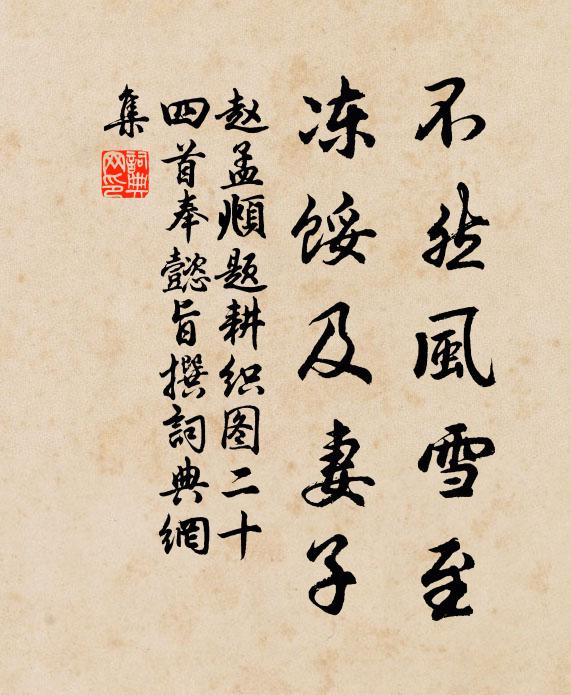 不然風雪至
冻馁及妻子
赵孟頫题耕织图二十
四首奉懿旨撰詞典網
集
詞典網印